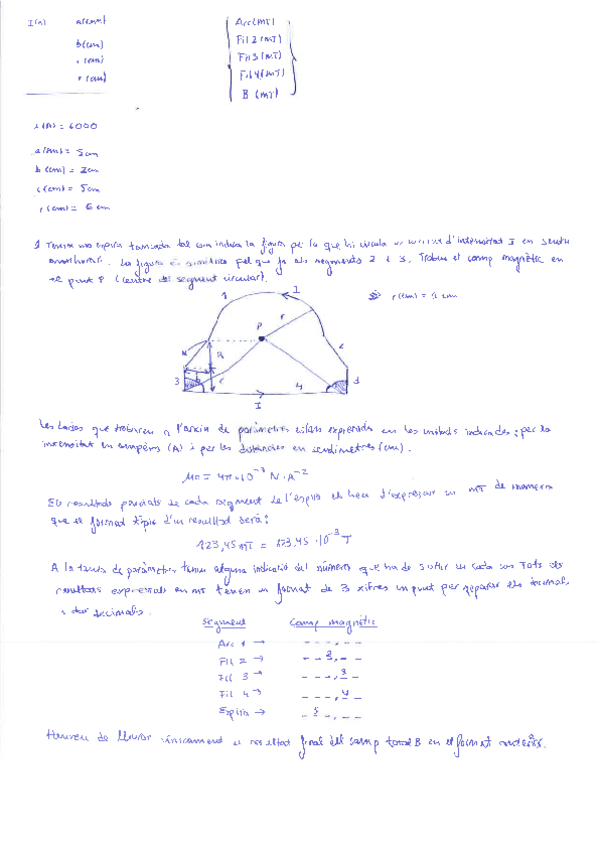 I(A) a(cm)
b(cm)
c(cm)
r(cm)
Arc(mT)
Fil 2(mT)
Fil 3(mT)
Fil 4(mT)
B (mT)
I(A) = 6000
a(cm) = 5cm
b(cm) = 2cm
c(cm) = 5cm
r(cm) = 6 cm
1 Tenim una espira tancada tal com indica la figura per la que hi circula un corrent d'intensitat I en sentit
antihorari. La figura és simètrica pel que fa als segments 2 i 3. Trobeu el camp magnètic en
el punt P (centre del segment circular).
r(cm) =
1
I
r
P
2
a
3
c
4
3
I
Les dades que trobareu a l'arxiu de paràmetres estan expressades en les unitats indicades: per la
intensitat en ampers (A) i per les distàncies en centímetres (cm).
μ₀ = 4π·10⁻⁷ N·A⁻²
Els resultats parcials de cada segment de l'espira els heu d'expressar en mT de manera
que el format típic d'un resultat serà:
123,45 mT = 123,45·10⁻³ T
A la taula de paràmetres teniu alguna indicació del número que ha de sortir en cada cas. Tots els
resultats expressats en mT tenen un format de 3 xifres un punt per separar els decimals
i dos decimals.
Segment Camp magnètic
Arc 1 → - - - , - -
Fil 2 → - - 3 , - -
Fil 3 → - - - , 8 -
Fil 4 → - - - , 4 -
Espira → - 5 - , - -
Heureu de lliurar únicament el resultat final del camp total B en el format